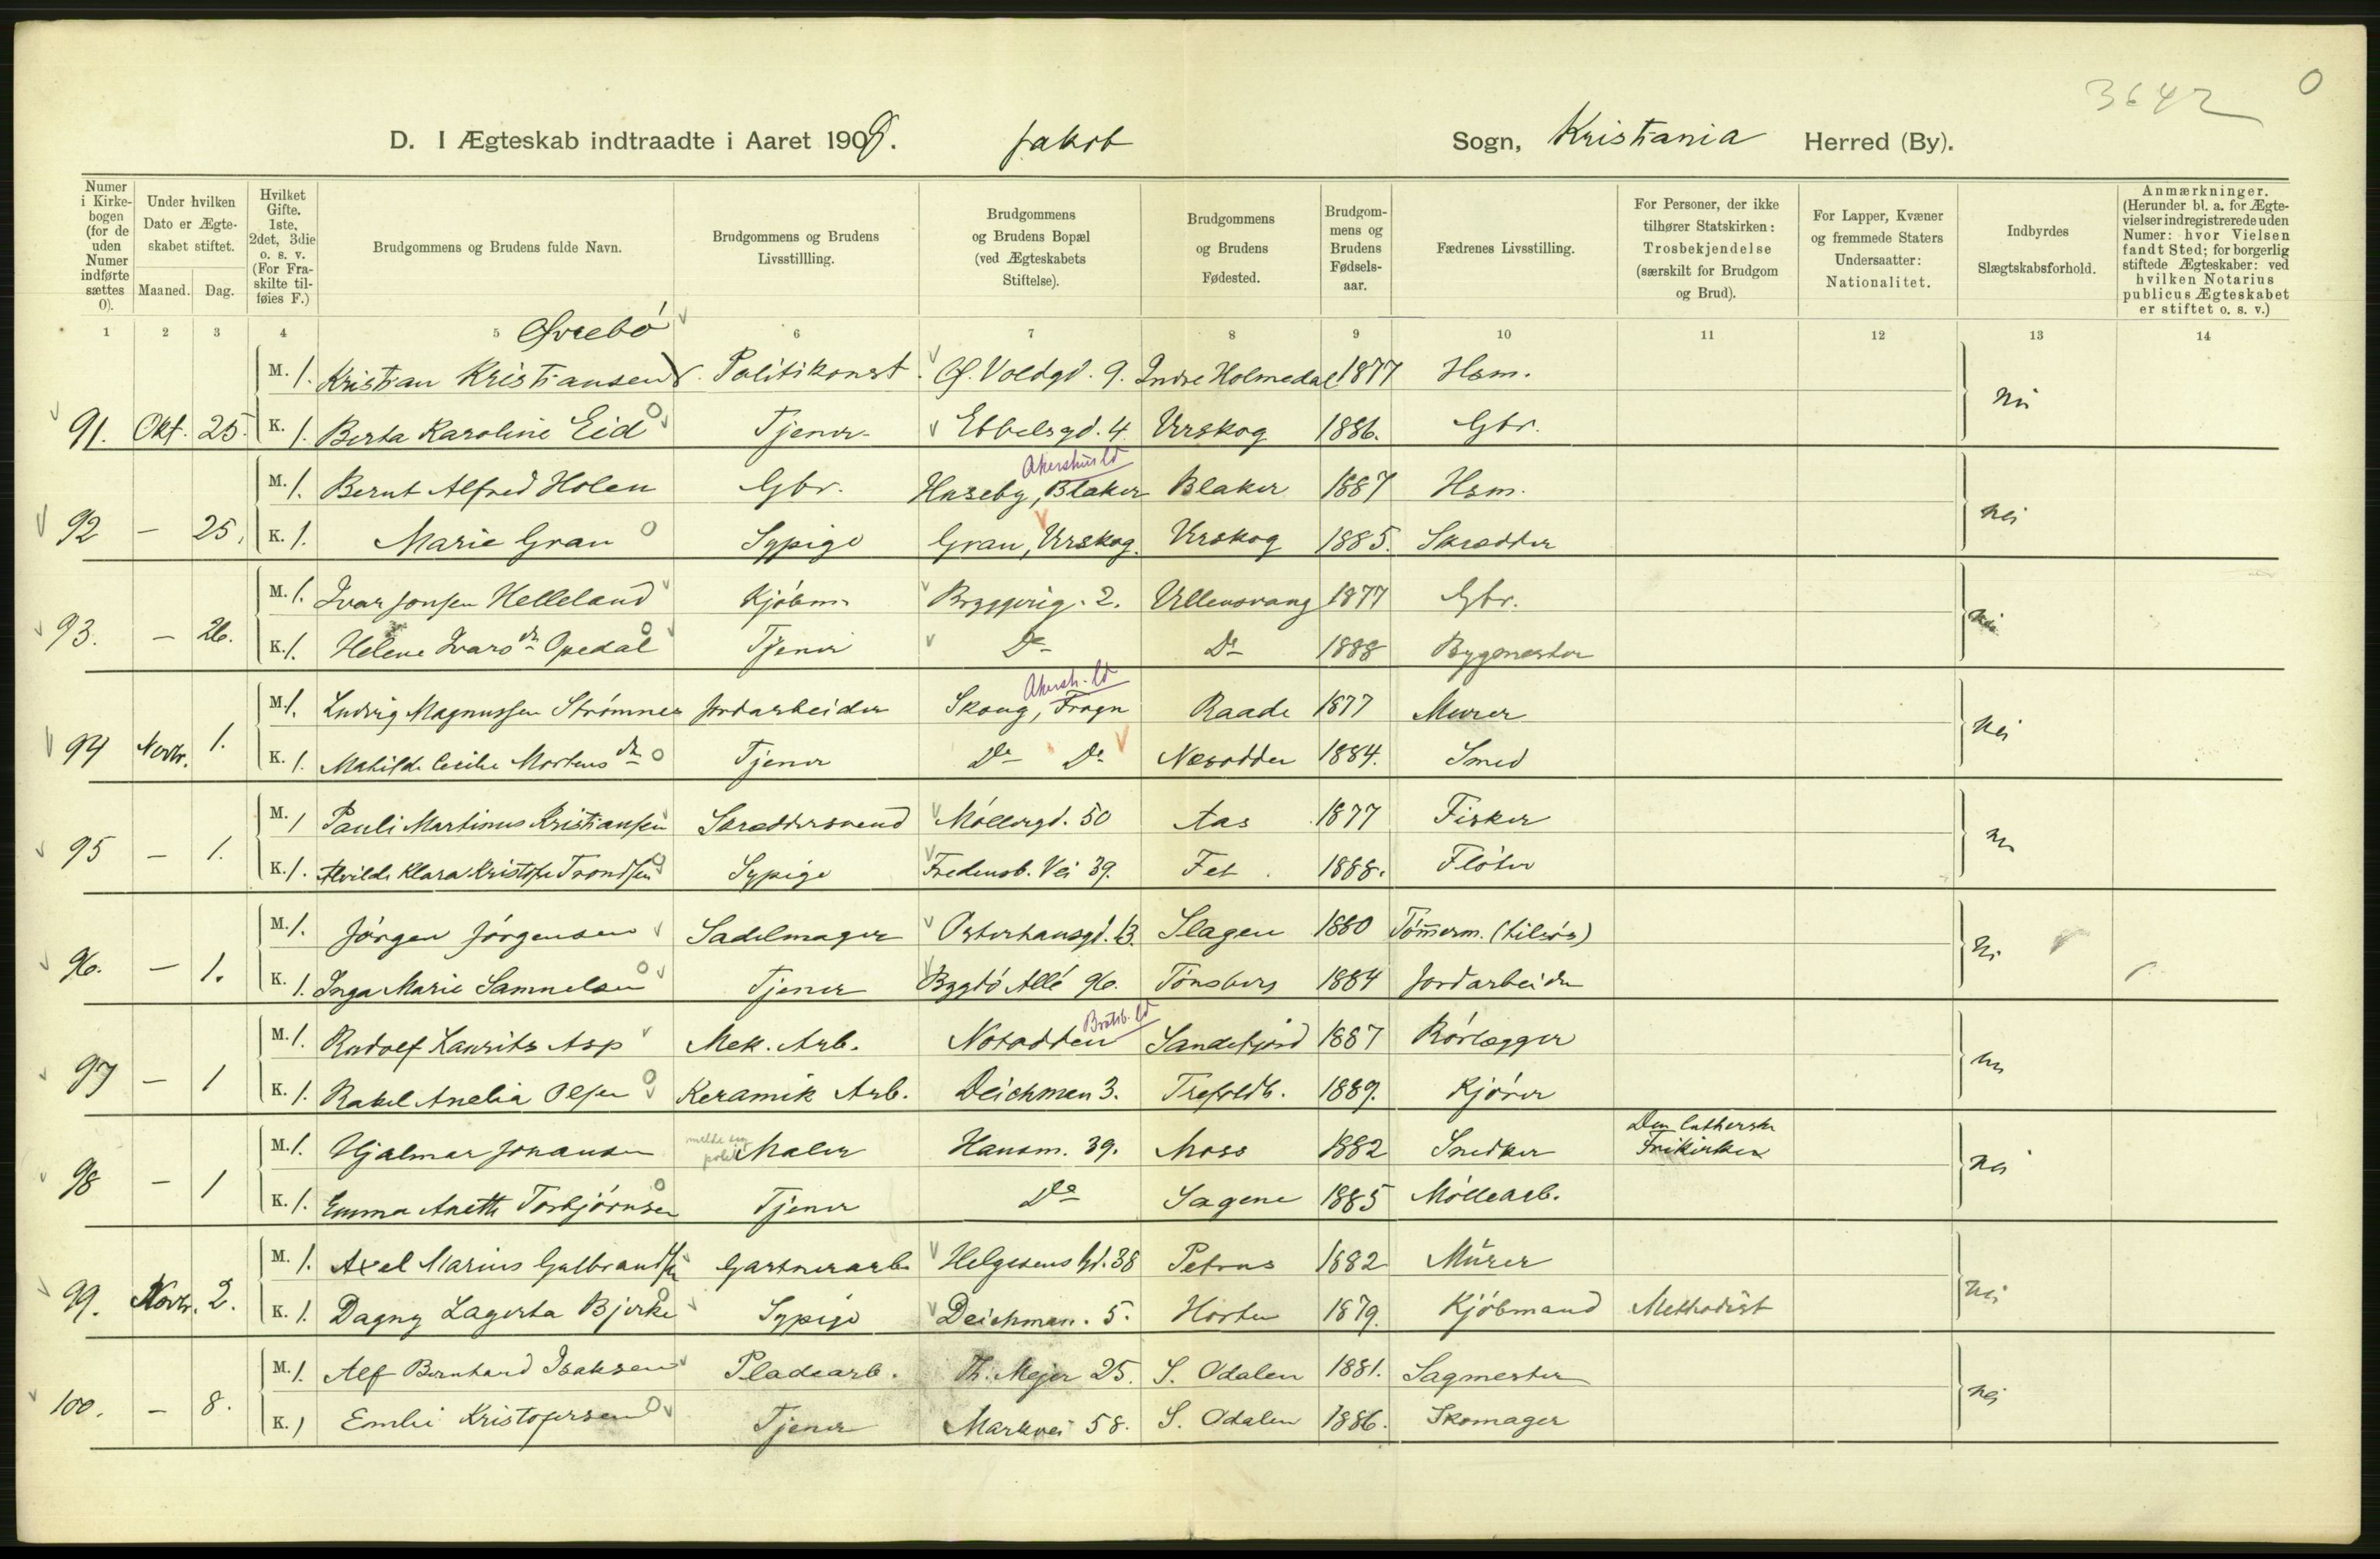 3642 0
D. I Ægteskab indtraadte i Aaret 1909. Jakob Sogn, Kristiania Herred (By).
Numer i Kirkebogen (for de uden Numer indførte sættes 0). Under hvilken Dato er Ægteskabet stiftet. Maaned. Dag. Hvilket Gifte. 1ste, 2det, 3die o. s. v. (For Fraskilte tilføies F.) Brudgommens og Brudens fulde Navn. Brudgommens og Brudens Livsstillling. Brudgommens og Brudens Bopæl (ved Ægteskabets Stiftelse). Brudgommens og Brudens Fødested. Brudgommens og Brudens Fødselsaar. Fædrenes Livsstilling. For Personer, der ikke tilhører Statskirken: Trosbekjendelse (særskilt for Brudgom og Brud). For Lapper, Kvæner og fremmede Staters Undersaatter: Nationalitet. Indbyrdes Slægtskabsforhold. Anmærkninger. (Herunder bl. a. for Ægtevielser indregistrerede uden Numer: hvor Vielsen fandt Sted; for borgerlig stiftede Ægteskaber: ved hvilken Notarius publicus Ægteskabet er stiftet o. s. v.)
1 2 3 4 5 6 7 8 9 10 11 12 13 14
Øvrebö
M. 1. Kristian Kristiansen Politikonst. Öf. Voldgd. 9. Indre Holmedal 1877 Hsm. nei
91. Okt. 25. K. 1. Berta Karoline Eid Tjener Ebbelsgd. 4 Urskog 1886. Gbr.
Akershus
M. 1. Bernt Alfred Holen Gbr. Huseby, Blaker Blaker 1887 Hsm. nei
92 — 25. K. 1. Marie Gran Sypige Gran, Urskog. Urskog 1885. Skrædder
M. 1. Ivar Jonsen Helleland Kjöbm. Bryggerig. 2. Ullensvang 1877 Gbr. nei
93. — 26. K. 1. Helene Ivarsdr Opedal Tjener Do Do 1888 Bygmester
Akersh.
M. 1. Ludvig Magnussen Strömnes Jordarbeider Skoug, Frogn Raade 1877 Murer nei
94 Novbr. 1. K. 1. Matilde Cecilie Mortensdr Tjener Do Do Nesodden 1884. Smed
M. 1 Pauli Martinus Kristiansen Skræddersvend Möllergd. 50 Aas 1877 Fisker nei
95 — 1. K. 1. Alvilde Klara Kristofa Trondsen Sypige Fredensb. Vei 39. Fet 1888. Flöter
M. 1. Jörgen Jörgensen Sadelmager Osterhausgd. 13. Slagen 1880 Tömmerm. (tilsös) nei
96. — 1. K. 1. Inga Marie Samuelsen Tjener Bygdö Allé 96. Tönsberg 1884 Jordarbeider
Bratsb.
M. 1. Rudolf Laurits Asp Mek. Arb. Notodden Sandefjord 1887 Rörlægger nei
97 — 1 K. 1. Rakel Anelia Olsen Keramik Arb. Deichman 3. Trefoldh. 1889. Kjörer
M. 1. Hjalmar Johansen melde sig politi Maler Hansm. 39. Moss 1882 Snedker Den lutherske Frikirken nei
98 — 1 K. 1. Emma Anette Torbjörnsen Tjener Do Sagene 1885 Möllearb.
M. 1. Axel Marius Gulbrandsen Gartnerarb. Helgesens Gd. 38 Petrus 1882 Mürer nei
99. Novbr. 2. K. 1. Dagny Lagerta Bjerke Sypige Deichman. 5. Horten 1879. Kjöbmand Methodist
M. 1. Alf Bernhard Isaksen Pladearb. Th. Mejer 25. S. Odalen 1881. Sagmester nei
100. — 8. K. 1 Emilie Kristofersen Tjener Markvei 58. S. Odalen 1886. Skomager